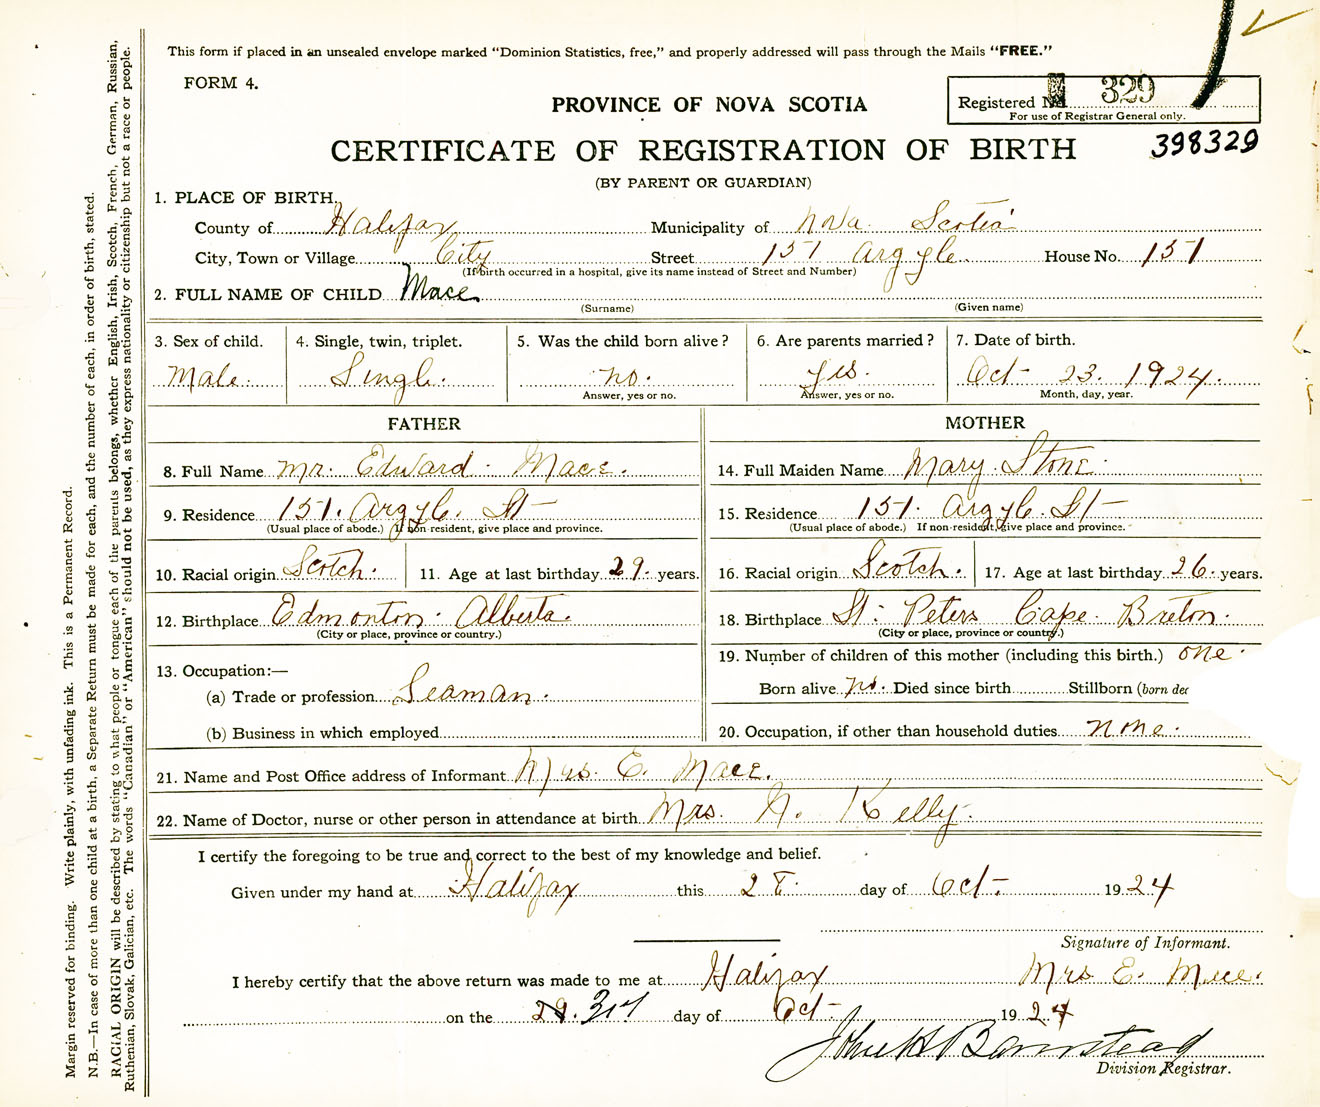 This form if placed in an unsealed envelope marked "Dominion Statistics, free," and properly addressed will pass through the Mails "FREE."
FORM 4.
PROVINCE OF NOVA SCOTIA
Registered No. 329
For use of Registrar General only.
CERTIFICATE OF REGISTRATION OF BIRTH
398329
(BY PARENT OR GUARDIAN)
1. PLACE OF BIRTH,
County of Halifax Municipality of Nova Scotia
City, Town or Village City Street 151 Argyle House No. 151
(If birth occurred in a hospital, give its name instead of Street and Number)
2. FULL NAME OF CHILD Mace
(Surname) (Given name)
3. Sex of child. 4. Single, twin, triplet. 5. Was the child born alive? 6. Are parents married? 7. Date of birth.
Male. Single. no. yes. Oct- 23. 1924.
Answer, yes or no. Answer, yes or no. Month, day, year.
FATHER MOTHER
8. Full Name Mr. Edward Mace. 14. Full Maiden Name Mary Stone.
9. Residence 151. Argyle. St- 15. Residence 151. Argyle. St-
(Usual place of abode.) (If non-resident, give place and province. (Usual place of abode.) If non-resident, give place and province.
10. Racial origin Scotch. 11. Age at last birthday 29. years. 16. Racial origin Scotch. 17. Age at last birthday 26. years.
12. Birthplace Edmonton. Alberta. 18. Birthplace St. Peters Cape Breton.
(City or place, province or country.) (City or place, province or country.)
19. Number of children of this mother (including this birth.) one.
13. Occupation:—
(a) Trade or profession Seaman. Born alive no. Died since birth Stillborn (born dec
(b) Business in which employed 20. Occupation, if other than household duties none.
21. Name and Post Office address of Informant Mrs. E. Mace.
22. Name of Doctor, nurse or other person in attendance at birth Mrs. N. Kelly.
I certify the foregoing to be true and correct to the best of my knowledge and belief.
Given under my hand at Halifax this day of Oct- 1924
Signature of Informant.
I hereby certify that the above return was made to me at Halifax Mrs E. Mace.
on the 31st day of Oct- 1924
Division Registrar.
Margin reserved for binding. Write plainly, with unfading ink. This is a Permanent Record.
N.B.—In case of more than one child at a birth, a Separate Return must be made for each, and the number of each, in order of birth, stated.
RACIAL ORIGIN will be described by stating to what people or tongue each of the parents belongs, whether English, Irish, Scotch, French, German, Russian,
Ruthenian, Slovak, Galician, etc. The words "Canadian" or "American" should not be used, as they express nationality or citizenship but not a race or people.